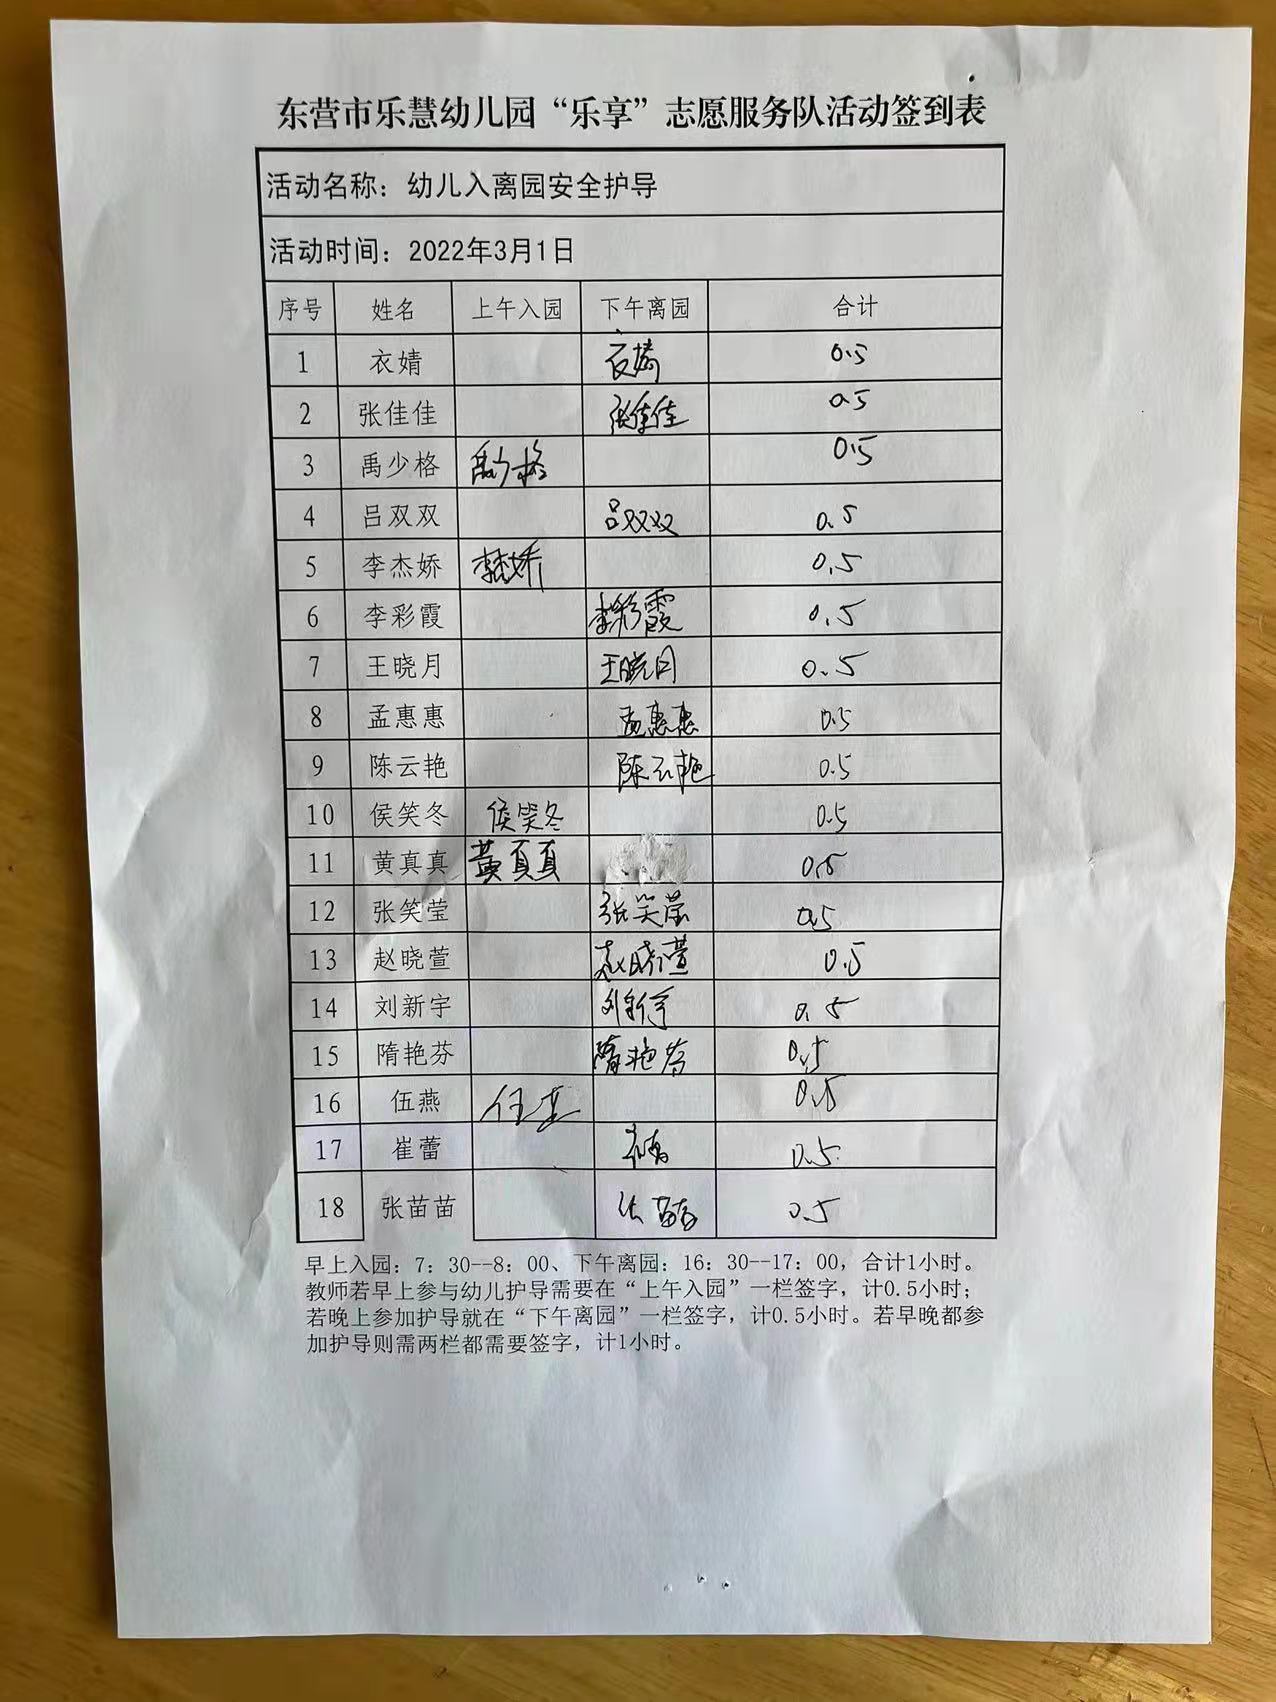 东营市乐慧幼儿园“乐享”志愿服务队活动签到表
活动名称：幼儿入离园安全护导
活动时间：2022年3月1日
序号 姓名 上午入园 下午离园 合计
1 衣婧 衣婧 0.5
2 张佳佳 张佳佳 0.5
3 禹少格 禹少格 0.5
4 吕双双 吕双双 0.5
5 李杰娇 李杰娇 0.5
6 李彩霞 李彩霞 0.5
7 王晓月 王晓月 0.5
8 孟惠惠 孟惠惠 0.5
9 陈云艳 陈云艳 0.5
10 侯笑冬 侯笑冬 0.5
11 黄真真 黄真真 0.5
12 张笑莹 张笑莹 0.5
13 赵晓萱 赵晓萱 0.5
14 刘新宇 刘新宇 0.5
15 隋艳芬 隋艳芬 0.5
16 伍燕 0.5
17 崔蕾 0.5
18 张苗苗 张苗苗 0.5
早上入园：7：30--8：00、下午离园：16：30--17：00，合计1小时。
教师若早上参与幼儿护导需要在“上午入园”一栏签字，计0.5小时；
若晚上参加护导就在“下午离园”一栏签字，计0.5小时。若早晚都参
加护导则需两栏都需要签字，计1小时。